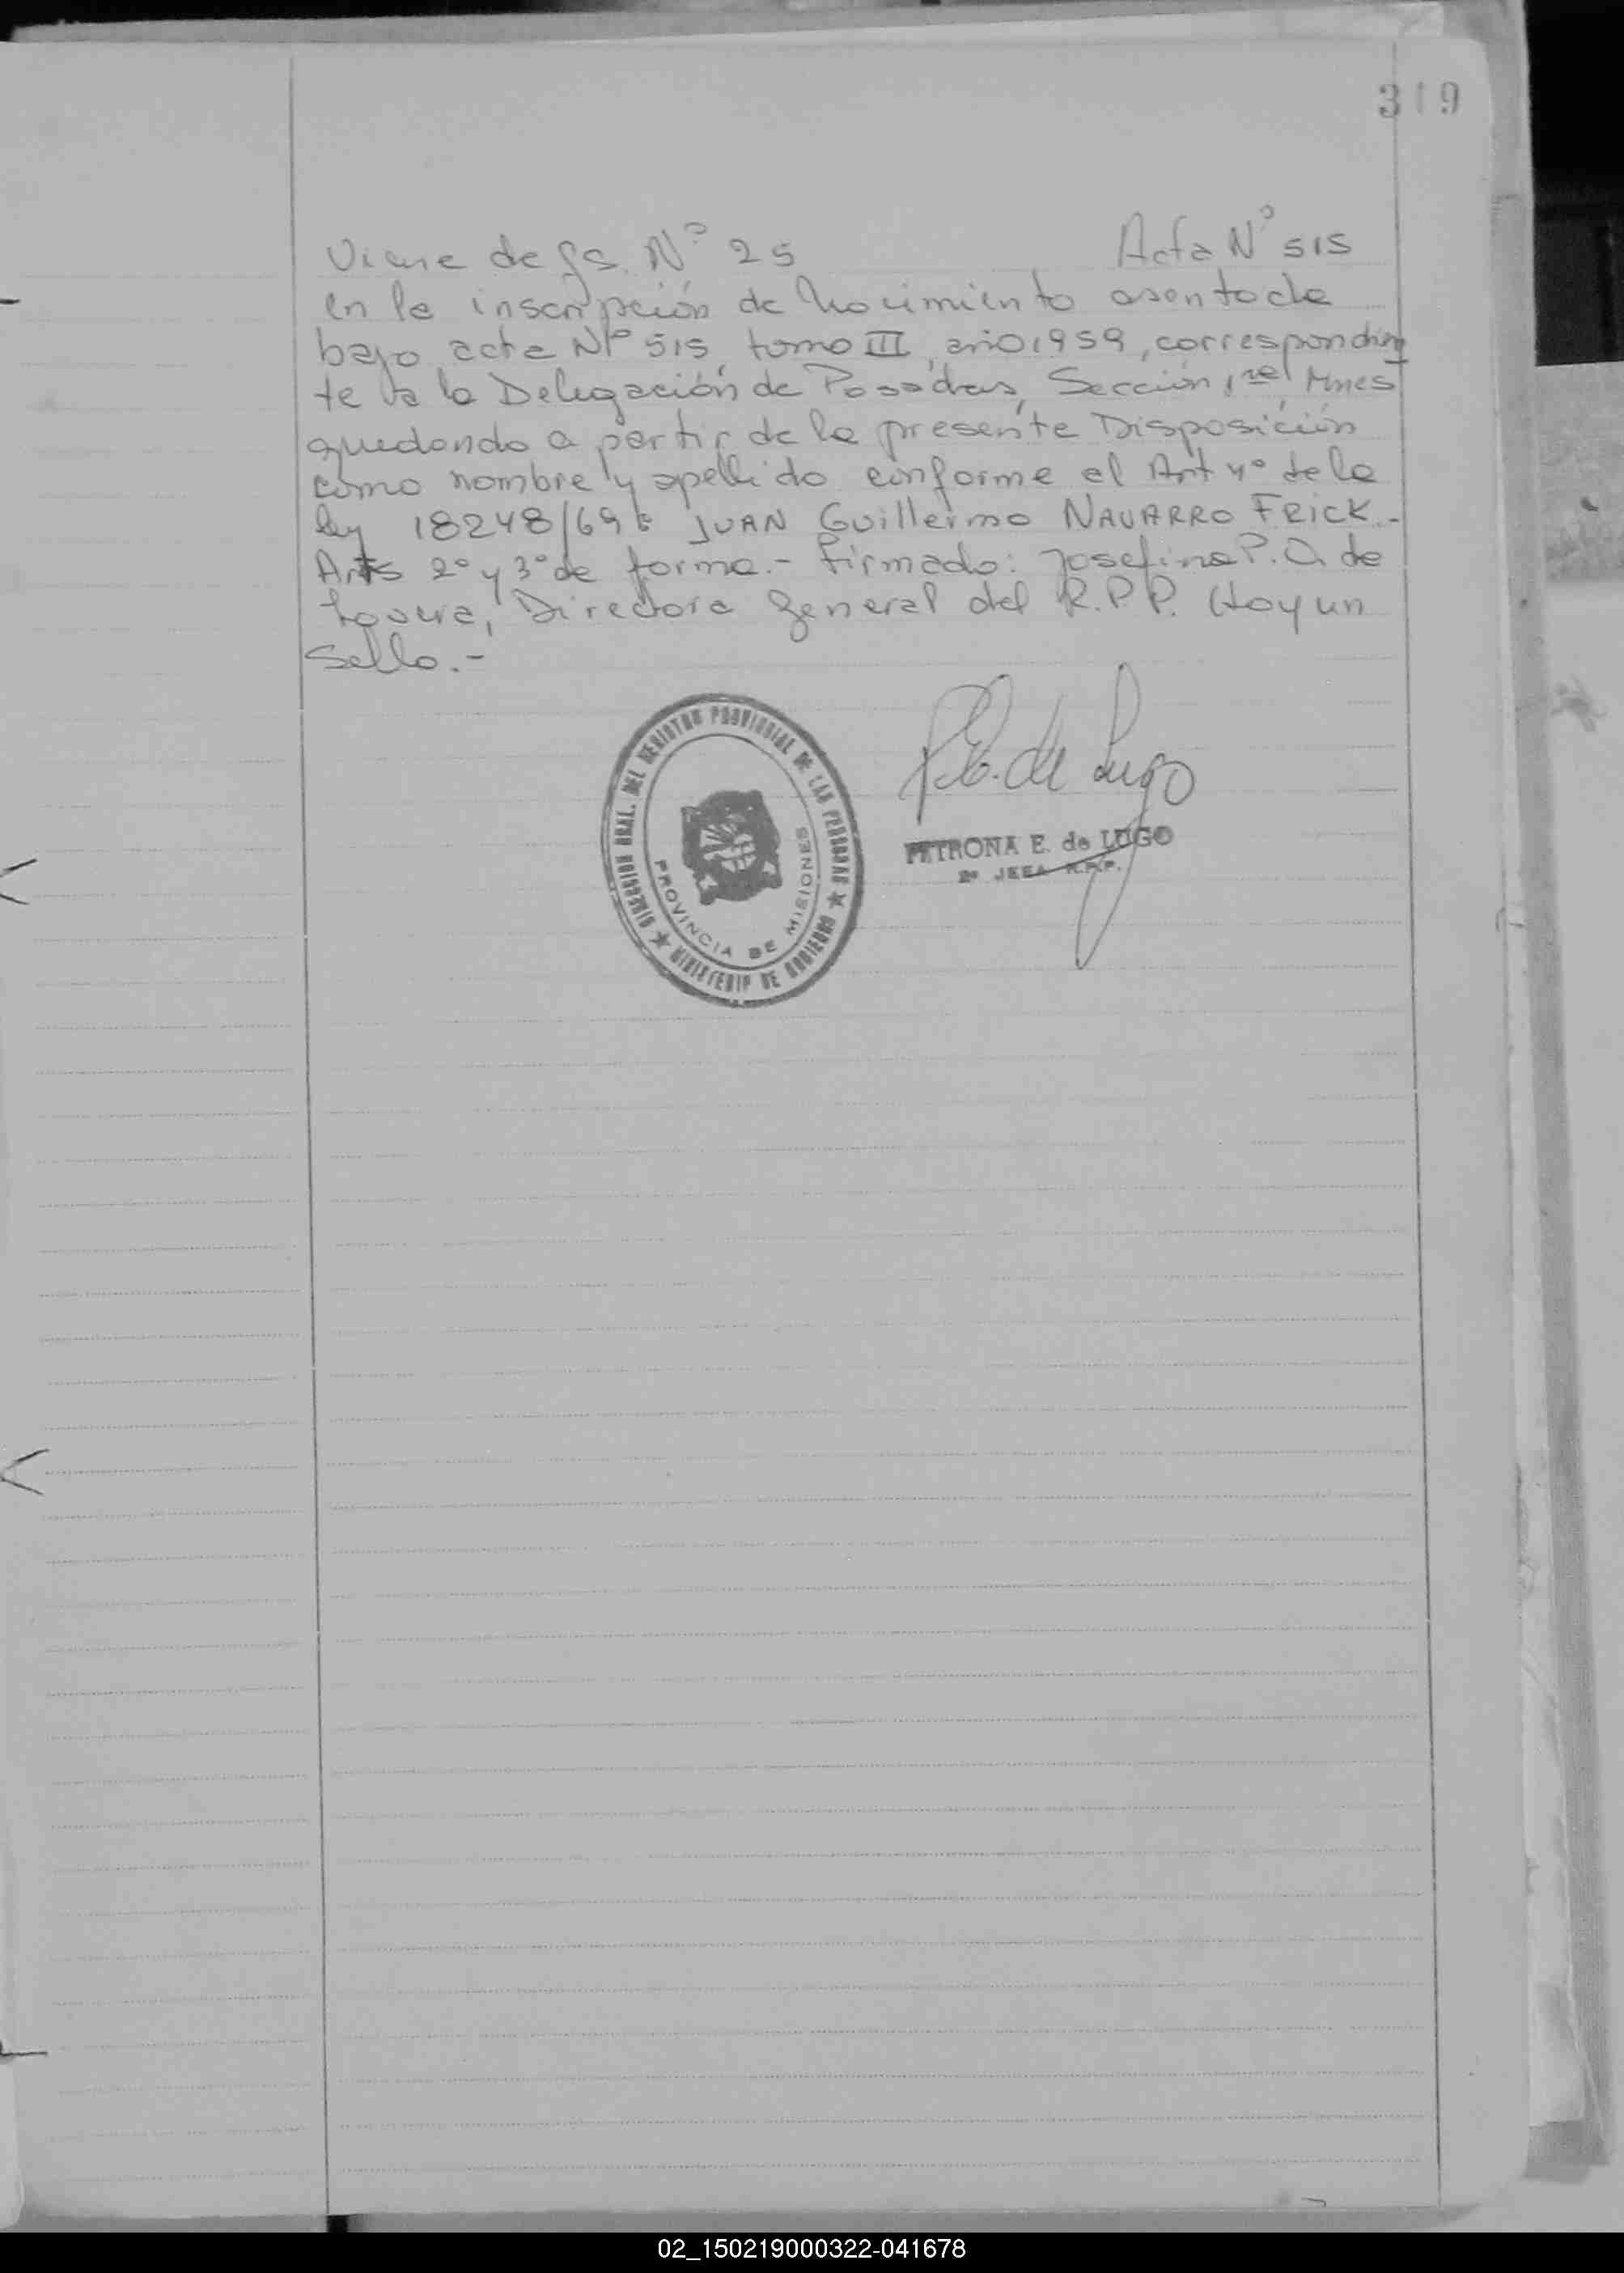 319
Viene de fs. Nº 25 Acta Nº 515
en la inscripción de Nacimiento asentada
bajo acta Nº 515, tomo III, año 1959, correspondien
te a la Delegación de Posadas, Sección 1ra, Mnes
quedando a partir de la presente Disposición
como nombre y apellido conforme el Art 4º de la
ley 18248/69: JUAN Guillermo NAVARRO FRICK.-
Arts 2º y 3º de forma.- Firmado: Josefina P. O. de
Directora General del R.P.P. Hay un
Sello.-
DIRECCION GRAL. DEL REGISTRO PROVINCIAL DE LAS PERSONAS ★ MINISTERIO DE GOBIERNO ★
PROVINCIA DE MISIONES
P.E. de Lugo
PETRONA E. de LUGO
2º JEFA R.P.P.
02_150219000322-041678